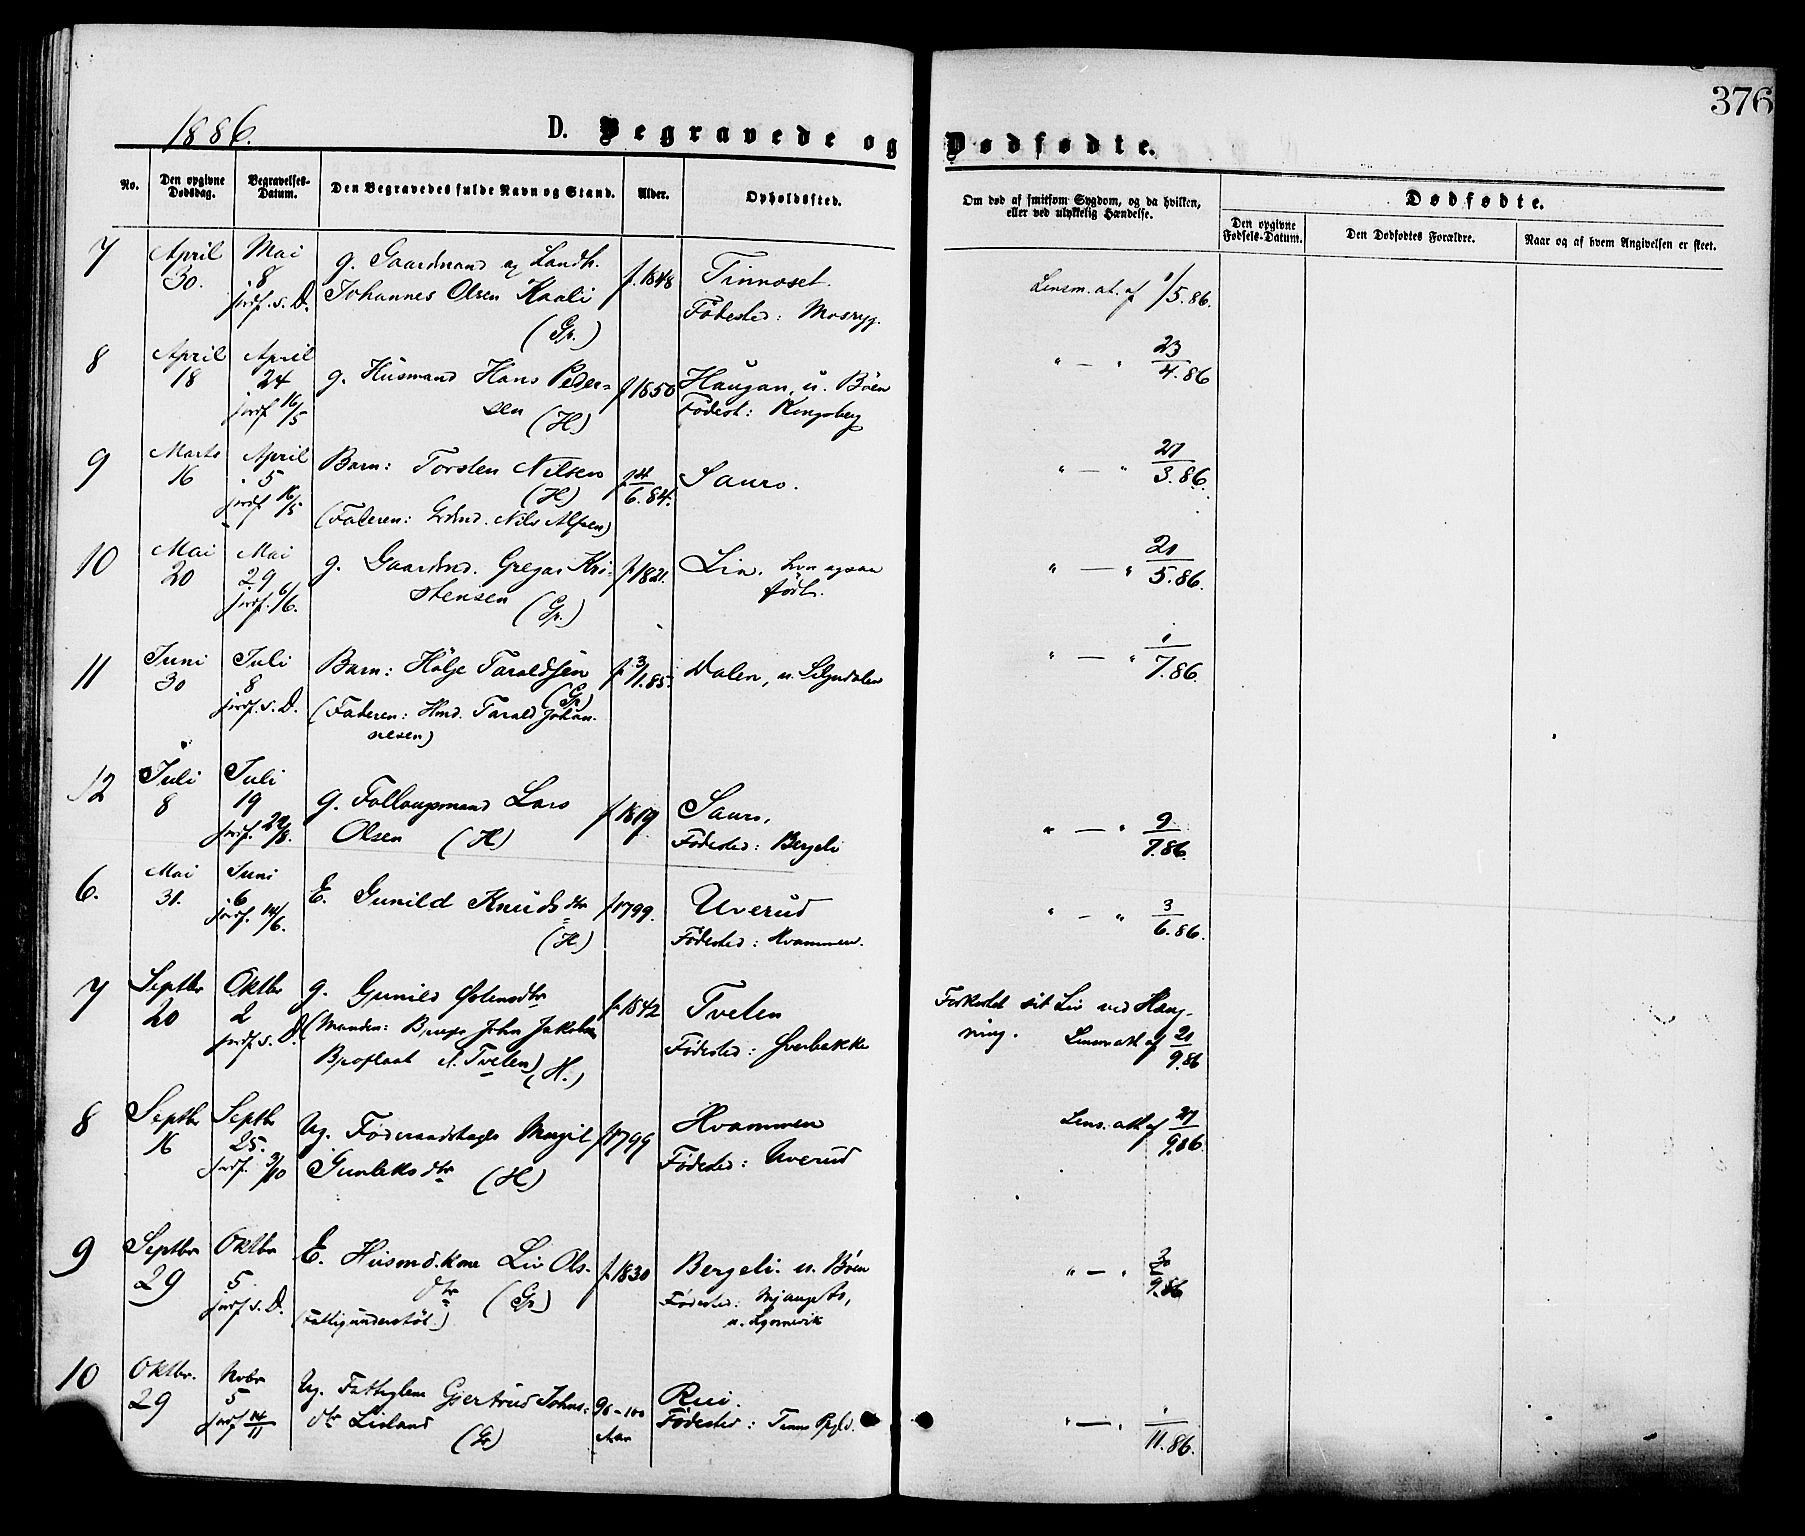 376
1886.
D. Begravede og Dødfødte.
No.
Den opgivne Dødsdag.
Begravelses-Datum.
Den Begravedes fulde Navn og Stand.
Alder.
Opholdssted.
Om død af smitsom Sygdom, og da hvilken, eller ved ulykkelig Hændelse.
Dødfødte.
Den opgivne Fødsels-Datum.
Den Dødfødtes Forældre.
Naar og af hvem Angivelsen er skeet.
7 April Mai g. Gaardmand og Landh.
30. 8 Johannes Olsen Kaali f. 1848 Tinnoset. Lensm. at. af 1/5.86.
jordf. s. D. (Gr.) Fødested: Mosryg.
8 April April g. Husmand Hans Peder- f 1850 Haugan, u. Bøen " — " 23/4.86
18 24 sen Fødest: Kongsberg
jordf 16/5 (H)
9 Marts April Barn: Torsten Nilsen f 14/6.84. Saure. " — " 21/3.86.
16 5 (H)
jordf 16/5 (Faderen: Grdmd. Nils Alfsen)
10 Mai Mai g. Gaardmd. Gregar Kri- f. 1821. Lia, hvor ogsaa " — " 21/5.86.
20 29 stensen født.
jordf. 6/6. (Gr.)
11 Juni Juli Barn: Hølje Taraldsen f 3/1.85. Dalen, u. " — " 1/7.86.
30 8 (Gr)
jordf. s. D. (Faderen: Hmd. Tarald Johan-
nesen)
12 Juli Juli g. Follaugsmand Lars f. 1819 Saure,
8 19 Olsen (H) Fødested: Bergeli " — " 9/7.86.
jordf. 22/8.
6. Mai Juni E. Gunild Knudsdtr f. 1799. Uverud " — " 3/6.86.
31. 6 (H.) Fødested: Hvammen.
jordf. 14/6.
7 Septbr Oktbr g. Gunild Østensdtr f. 1842 Tveten Forkortet sit Liv ved Hæng-
20 2 (Manden: John Jakobsen Fødested: Øverbekke ning. Lensm att af 21/9.86
jordf s. D. A. Tveten) (H.)
8 Septbr Septbr Ug. Margit f 1799 Hvammen Lens. att af 21/9.86
16 25. Gunleksdtr (H.) Fødested: Uverud
jordf. 3/10
9 Septbr Oktbr E. Husmd.kone Liv Ols- f. 1830 Bergeli u. Bøen " — "
29 5. dtr (Gr.) Fødested:
jordf s. D. (Fattigunderstøt.)
10 Oktbr. Novbr Ug. Fattiglem Gjertrud Johns- 96-100 Rui. " — " 1/11.86.
29 5 dtr Lisland Aar Fødested:
jordf 14/11 (Gr)